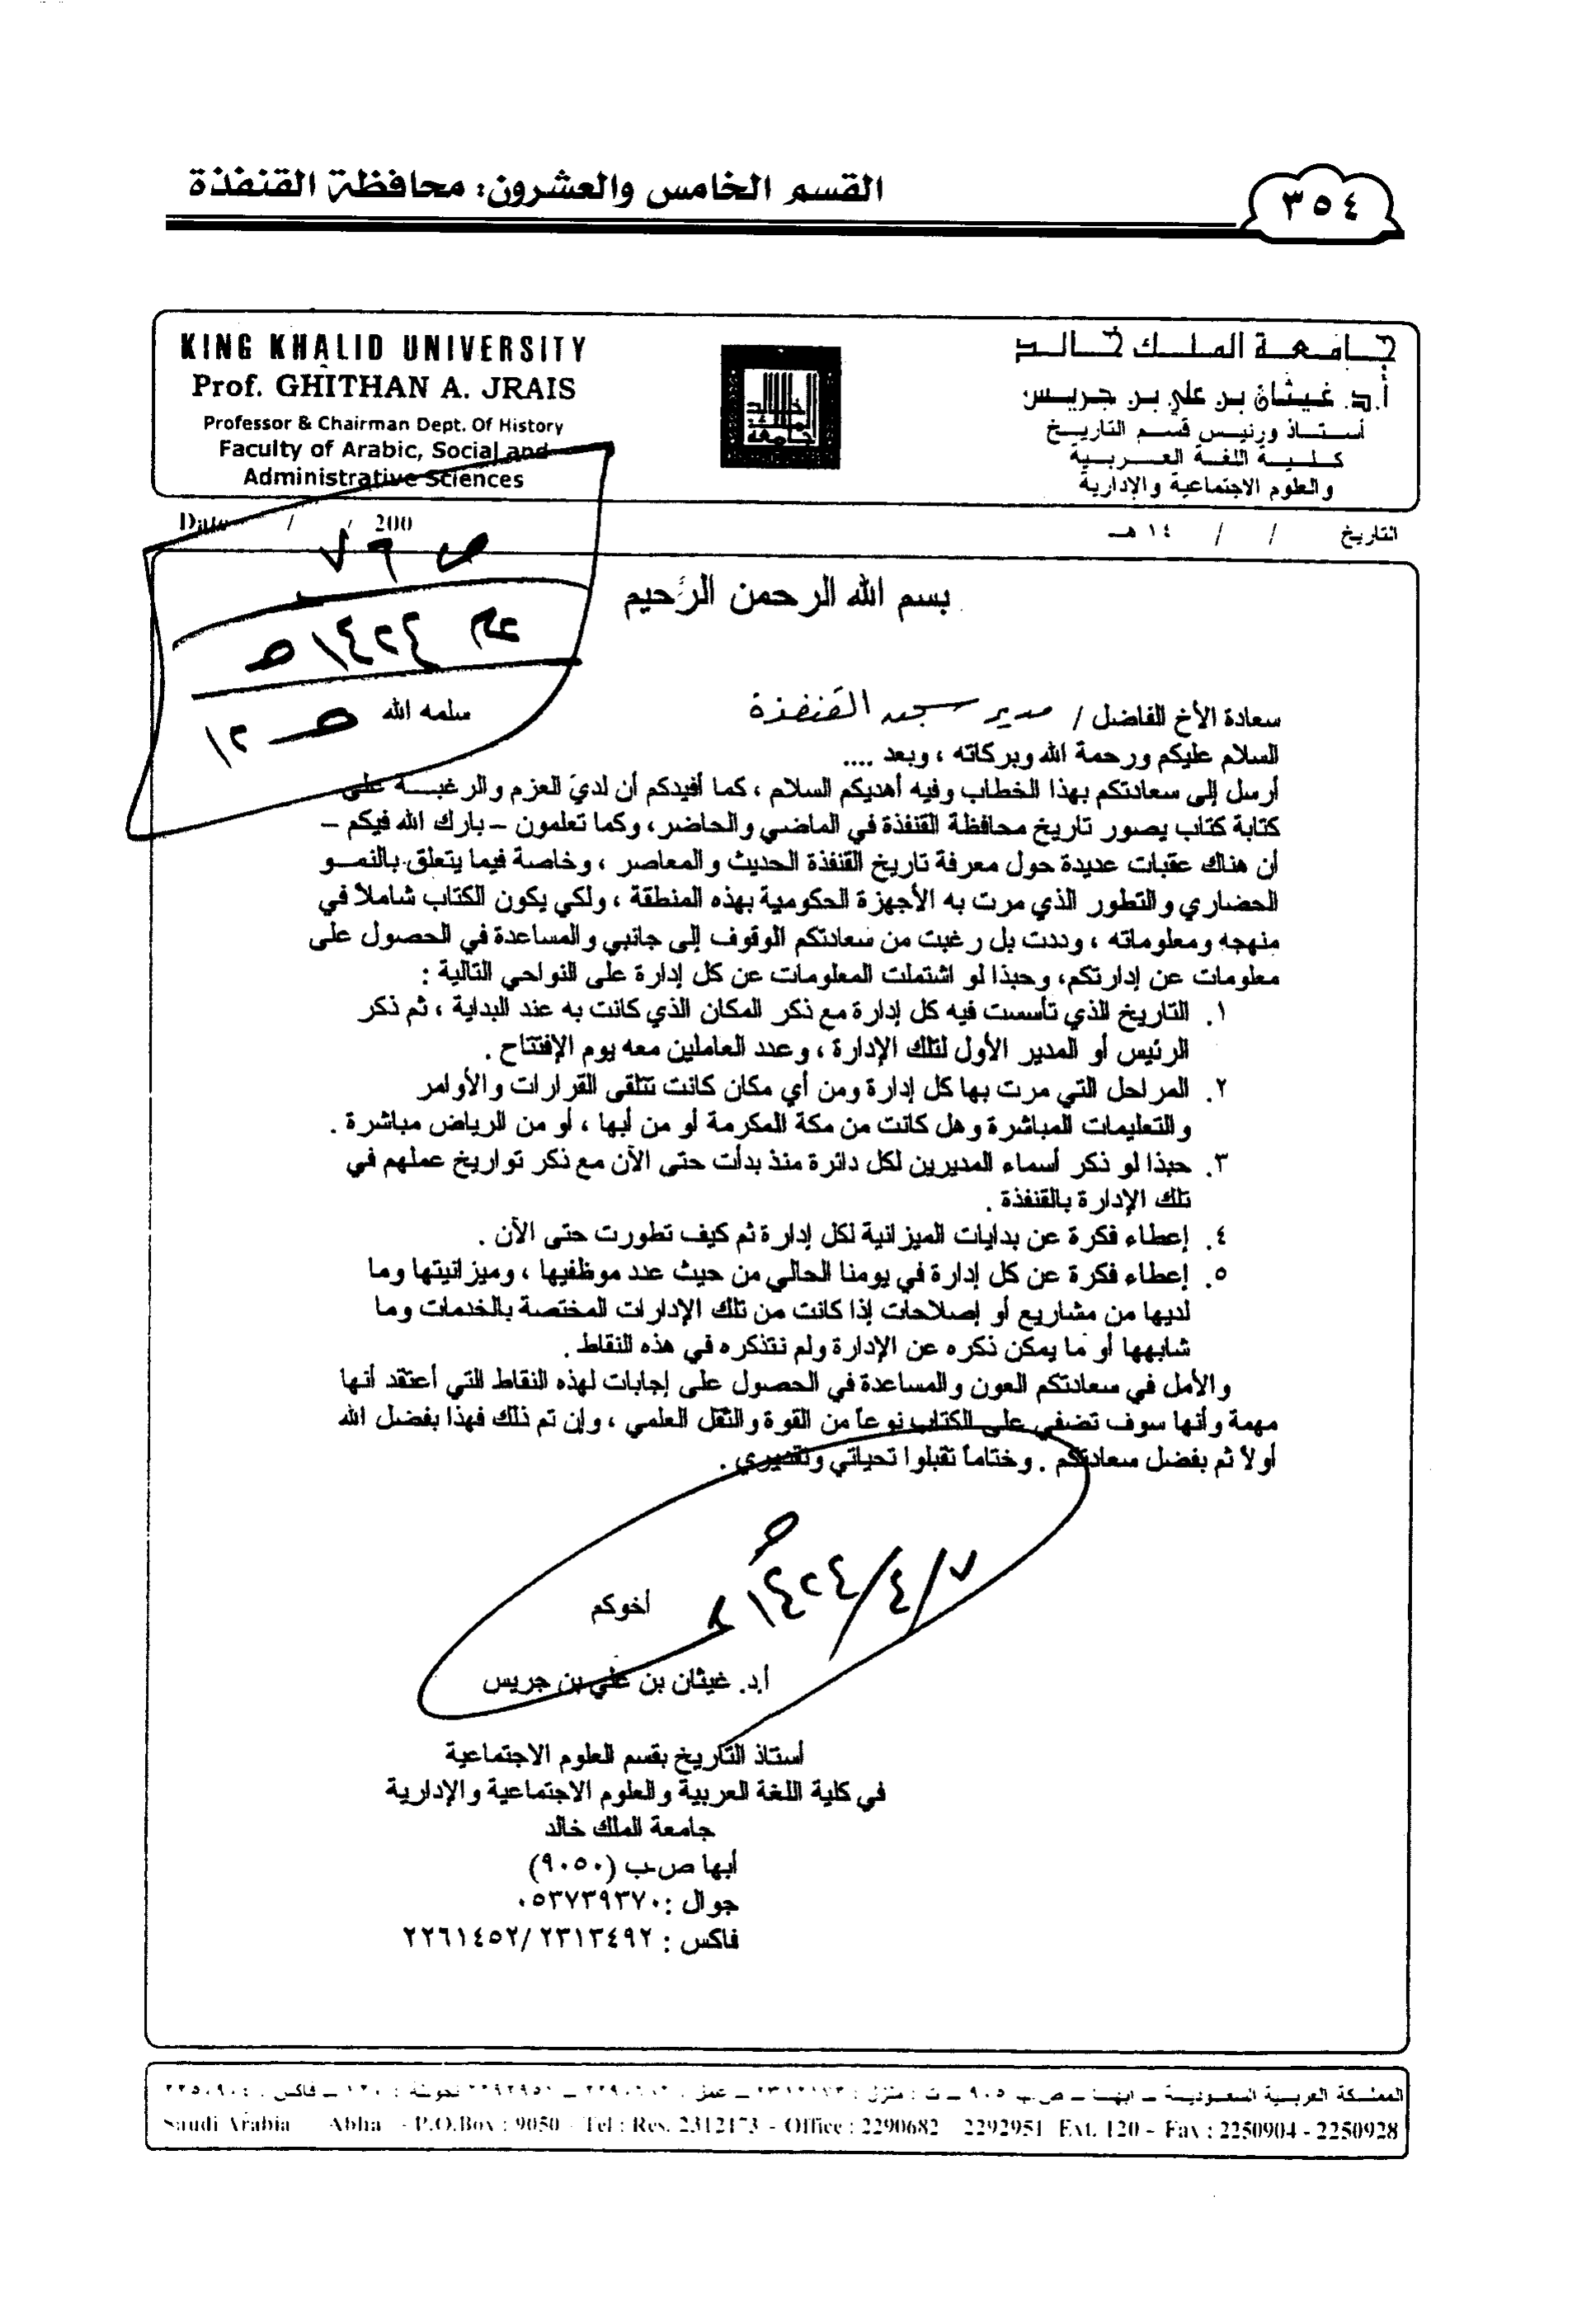 القسم الخامس والعشرون: محافظة القنفذة
٣٥٤
KING KHALID UNIVERSITY
Prof. GHITHAN A. JRAIS
Professor & Chairman Dept. Of History
Faculty of Arabic, Social and
Administrative Sciences
جامعة الملك خالد
أ.د. غيثان بن علي بن جريس
أستاذ ورئيس قسم التاريخ
كلية اللغة العربية
والعلوم الاجتماعية والإدارية
جامعة الملك خالد
Date / / 200
التاريخ / / ١٤ هـ
بسم الله الرحمن الرحيم
١٤٢٤هـ
سعادة الأخ الفاضل / مدير سجن القنفذة سلمه الله
السلام عليكم ورحمة الله وبركاته ، وبعد ....
أرسل إلى سعادتكم بهذا الخطاب وفيه أهديكم السلام ، كما أفيدكم أن لدي العزم والرغبة على
كتابة كتاب يصور تاريخ محافظة القنفذة في الماضي والحاضر، وكما تعلمون – بارك الله فيكم –
أن هناك عقبات عديدة حول معرفة تاريخ القنفذة الحديث والمعاصر ، وخاصة فيما يتعلق بالنمو
الحضاري والتطور الذي مرت به الأجهزة الحكومية بهذه المنطقة ، ولكي يكون الكتاب شاملاً في
منهجه ومعلوماته ، وددت بل رغبت من سعادتكم الوقوف إلى جانبي والمساعدة في الحصول على
معلومات عن إدارتكم، وحبذا لو اشتملت المعلومات عن كل إدارة على النواحي التالية :
١. التاريخ الذي تأسست فيه كل إدارة مع ذكر المكان الذي كانت به عند البداية ، ثم ذكر
الرئيس أو المدير الأول لتلك الإدارة ، وعدد العاملين معه يوم الإفتتاح .
٢. المراحل التي مرت بها كل إدارة ومن أي مكان كانت تتلقى القرارات والأوامر
والتعليمات المباشرة وهل كانت من مكة المكرمة أو من أبها ، أو من الرياض مباشرة .
٣. حبذا لو ذكر أسماء المديرين لكل دائرة منذ بدأت حتى الآن مع ذكر تواريخ عملهم في
تلك الإدارة بالقنفذة .
٤. إعطاء فكرة عن بدايات الميزانية لكل إدارة ثم كيف تطورت حتى الآن .
٥. إعطاء فكرة عن كل إدارة في يومنا الحالي من حيث عدد موظفيها ، وميزانيتها وما
لديها من مشاريع أو إصلاحات إذا كانت من تلك الإدارات المختصة بالخدمات وما
شابهها أو ما يمكن ذكره عن الإدارة ولم نتذكره في هذه النقاط .
والأمل في سعادتكم العون والمساعدة في الحصول على إجابات لهذه النقاط التي أعتقد أنها
مهمة وأنها سوف تضفي على الكتاب نوعاً من القوة والثقل العلمي ، وإن تم ذلك فهذا بفضل الله
أولاً ثم بفضل سعادتكم . وختاماً تقبلوا تحياتي وتقديري .
٧/٤/١٤٢٤هـ
أخوكم
أ.د. غيثان بن علي بن جريس
أستاذ التاريخ بقسم العلوم الاجتماعية
في كلية اللغة العربية والعلوم الاجتماعية والإدارية
جامعة الملك خالد
أبها ص.ب (٩٠٥٠)
جوال : ٠٥٣٧٣٩٣٧٠
فاكس : ٢٢٦١٤٥٢/٢٣١٣٤٩٢
المملكة العربية السعودية – أبها – ص.ب ٩٠٥ – ت : منزل : ٢٣١٢١٧٣ – عمل :
Saudi Arabia Abha - P.O.Box : 9050 - Tel : Res. 2312173 - Office : 2290682 2292951 Ext. 120 - Fax : 2250904 - 2250928